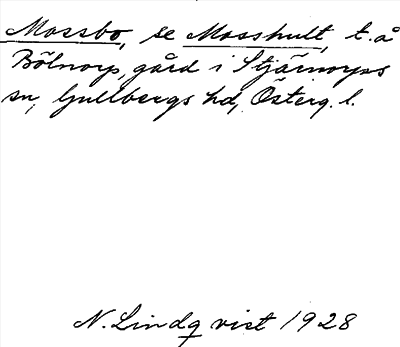 Mossbo, se Mosshult, t.å
Bölnorp, gård i Stjärnorps
sn, Gullbergs hd, Österg. l.
N. Lindqvist 1928